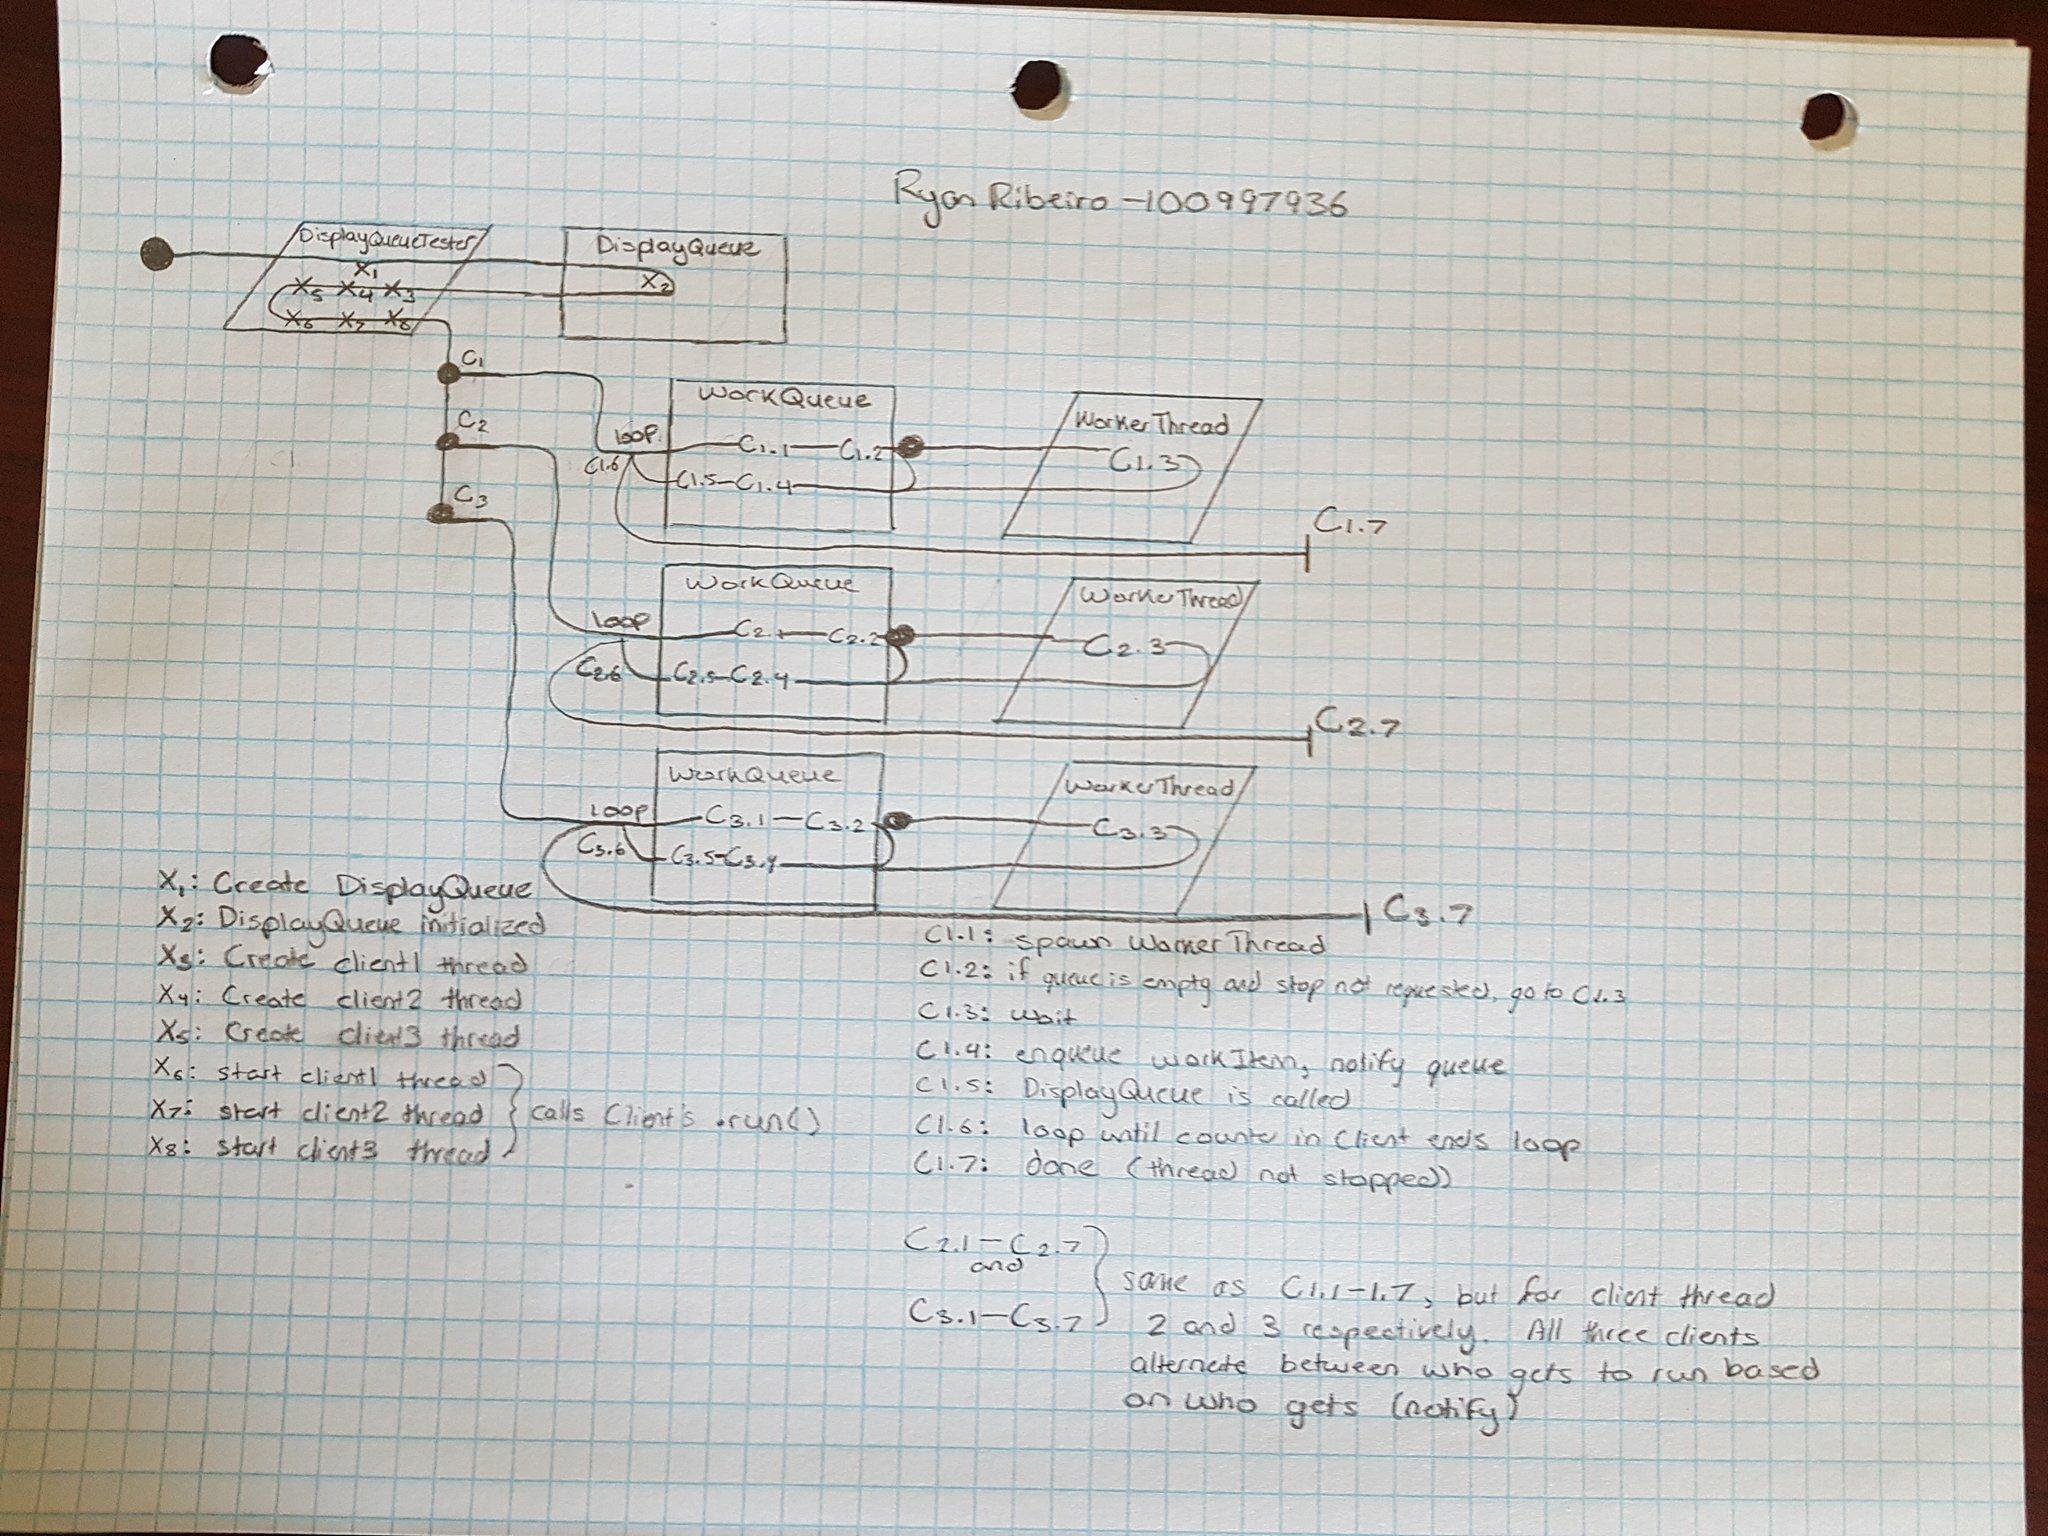 Ryan Ribeiro - 100997936
DisplayQueueTester
DisplayQueue
X1
X2
X5 X4 X3
X6 X7 X8
C1
C2
C3
WorkQueue
WorkerThread
loop
C1.1 C1.2
C1.3
C1.6
C1.5 C1.4
C1.7
WorkQueue
WorkerThread
loop
C2.1 C2.2
C2.3
C2.6
C2.5 C2.4
C2.7
WorkQueue
WorkerThread
loop
C3.1 C3.2
C3.3
C3.6
C3.5 C3.4
C3.7
X1: Create DisplayQueue
X2: DisplayQueue initialized
X3: Create client1 thread
X4: Create client2 thread
X5: Create client3 thread
X6: start client1 thread
X7: start client2 thread
X8: start client3 thread
calls Client's .run()
C1.1: spawn WorkerThread
C1.2: if queue is empty and stop not requested, go to C1.3
C1.3: wait
C1.4: enqueue workItem, notify queue
C1.5: DisplayQueue is called
C1.6: loop until counter in Client ends loop
C1.7: done (thread not stopped))
C2.1 - C2.7
and
C3.1 - C3.7
same as C1.1-1.7, but for client thread
2 and 3 respectively. All three clients
alternate between who gets to run based
on who gets (notify)